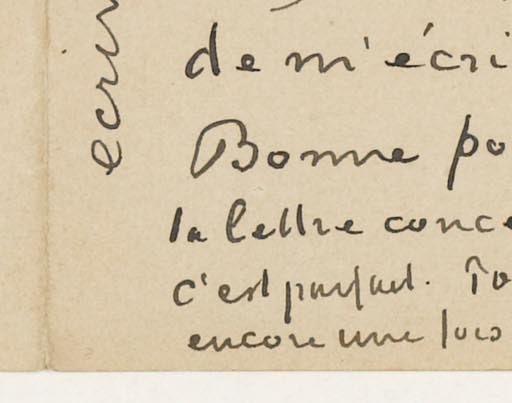 de m'écri
Bonne po
la lettre conce
c'est parfait. To
encore une fois
ecriv